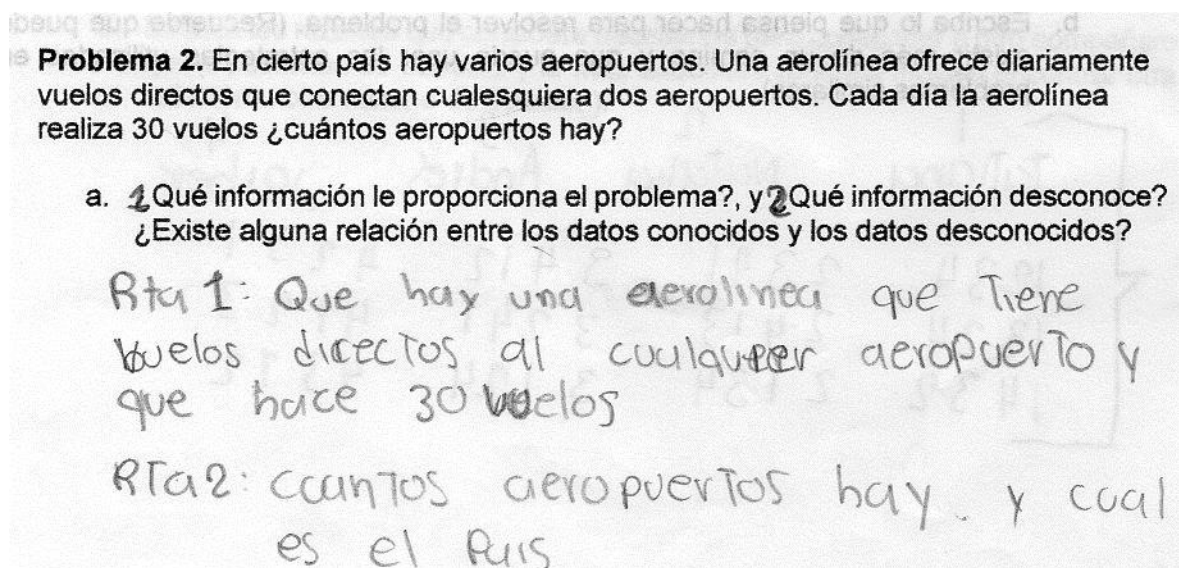 b. Escriba lo que piensa hacer para resolver el problema. (Recuerde que pued
Problema 2. En cierto país hay varios aeropuertos. Una aerolínea ofrece diariamente
vuelos directos que conectan cualesquiera dos aeropuertos. Cada día la aerolínea
realiza 30 vuelos ¿cuántos aeropuertos hay?
a. 1 Qué información le proporciona el problema?, y 2 Qué información desconoce?
¿Existe alguna relación entre los datos conocidos y los datos desconocidos?
Rta 1: Que hay una aerolinea que Tiene
vuelos directos al cualqueer aeropuerto y
que hace 30 vuelos
RTa2: ccantos aeropuertos hay. y cual
es el Pais